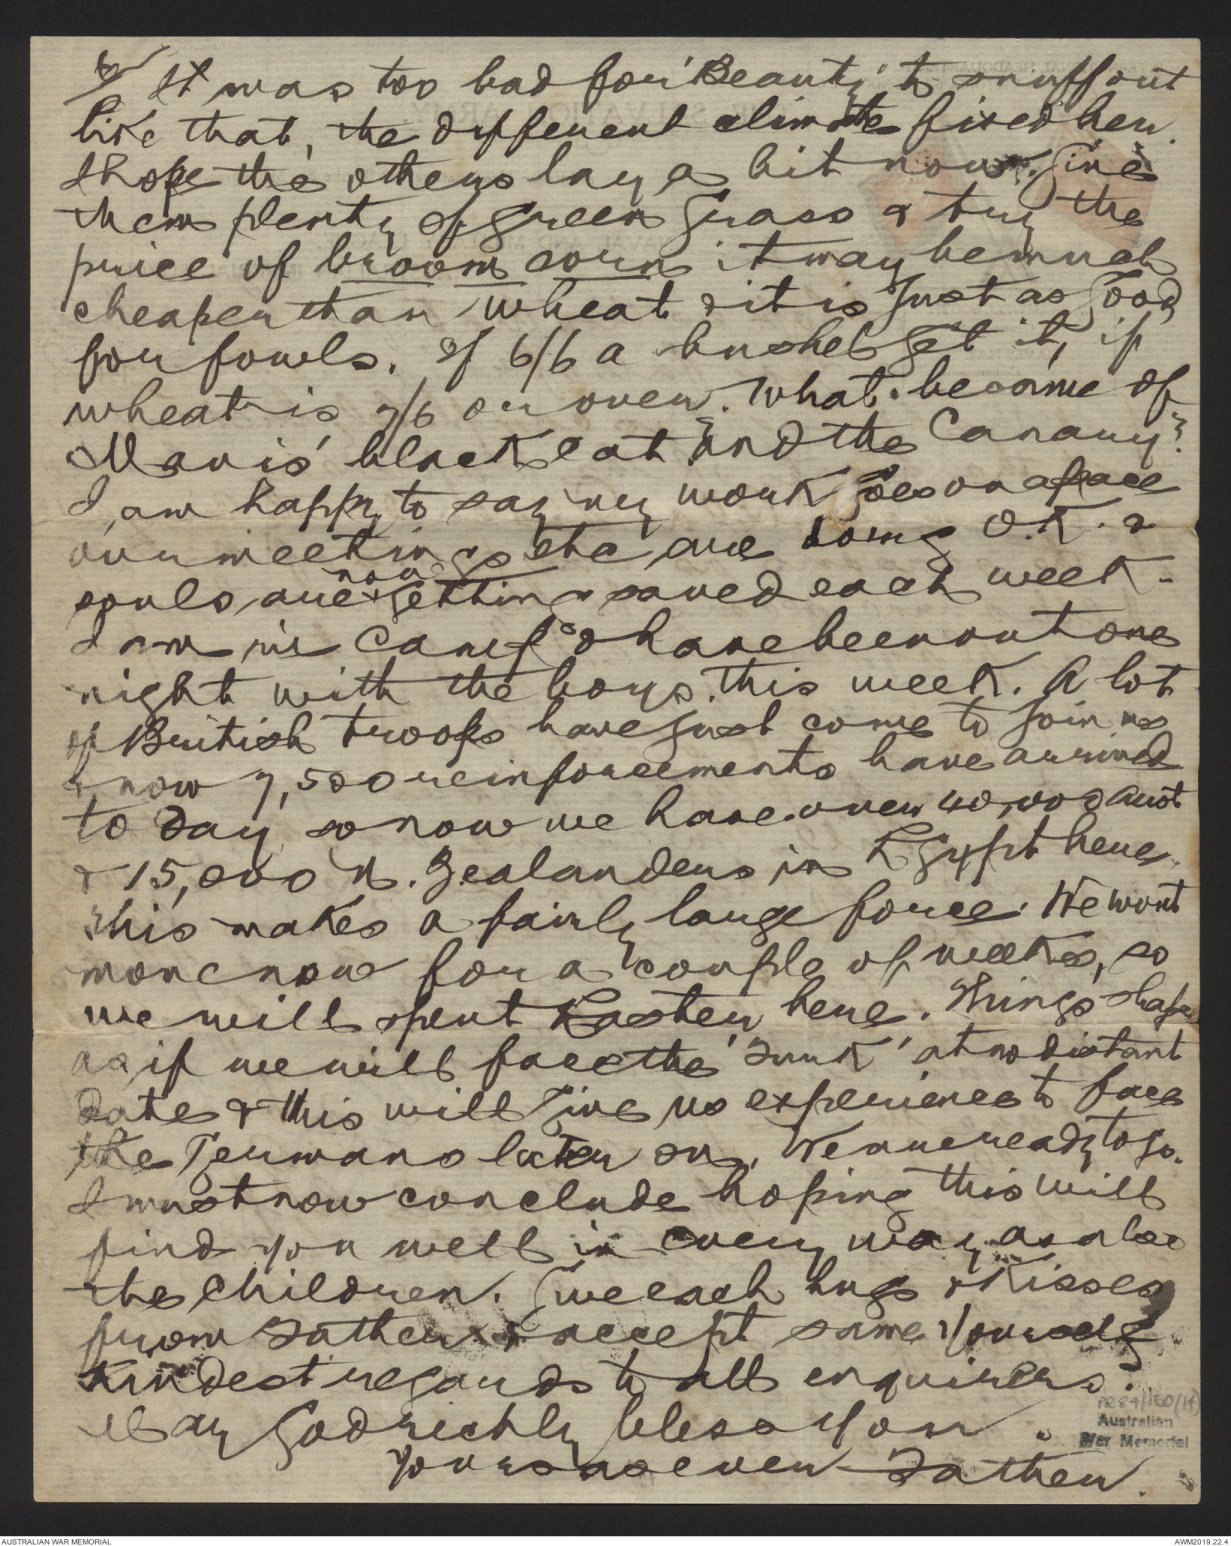 6/ It was too bad for "Beauty" to snuff out
like that, the different climate fixed her.
I hope the others lay a bit now. Give
them plenty of green grass & try the
price of broom corn it may be much
cheaper than wheat & it is just as good
for fowls. If 6/6 a bushel get it, if
wheat is 7/6 or over. What became of
Mavis' black cat? And the Canary?
I am happy to say my work goes on apace
our meetings etc are doing O.K. &
souls are now getting saved each week.
I am in Camp & have been out one
night with the boys this week. A lot
of British troops have just come to join us
& now 7,500 reinforcements have arrived
to day so now we have over 40,000 Aust
& 15,000 N. Zealanders in Egypt here.
This makes a fairly large force. We wont
move now for a couple of weeks, so
we will spent Easter here. Things shape
as if we will face the "Turk" at no distant
date & this will give us experience to face
the Germans later on. We are ready to go.
I must now conclude hoping this will
find you well in every way as also
the children. Give each hugs & kisses
from Father & accept same yourself
Kindest regards to all enquirers.
May God richly bless you.
Yours as ever Father.
PR84/150(14)
Australian
War Memorial
AUSTRALIAN WAR MEMORIAL
AWM2019.22.4